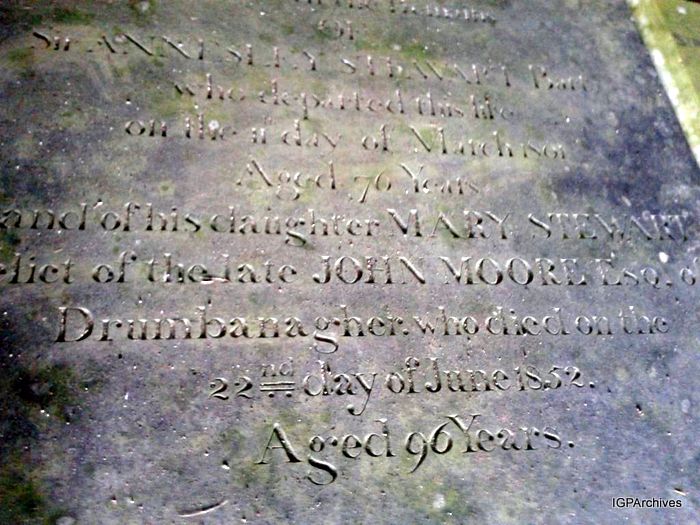 Of
Sir ANNESLEY STEWART Bart
who departed this life
on the 1st day of March 1801
Aged 76 Years
and of his daughter MARY STEWART
elict of the late JOHN MOORE Esq.
Drumbanagher. who died on the
22nd day of June 1852.
Aged 96 Years.
IGPArchives